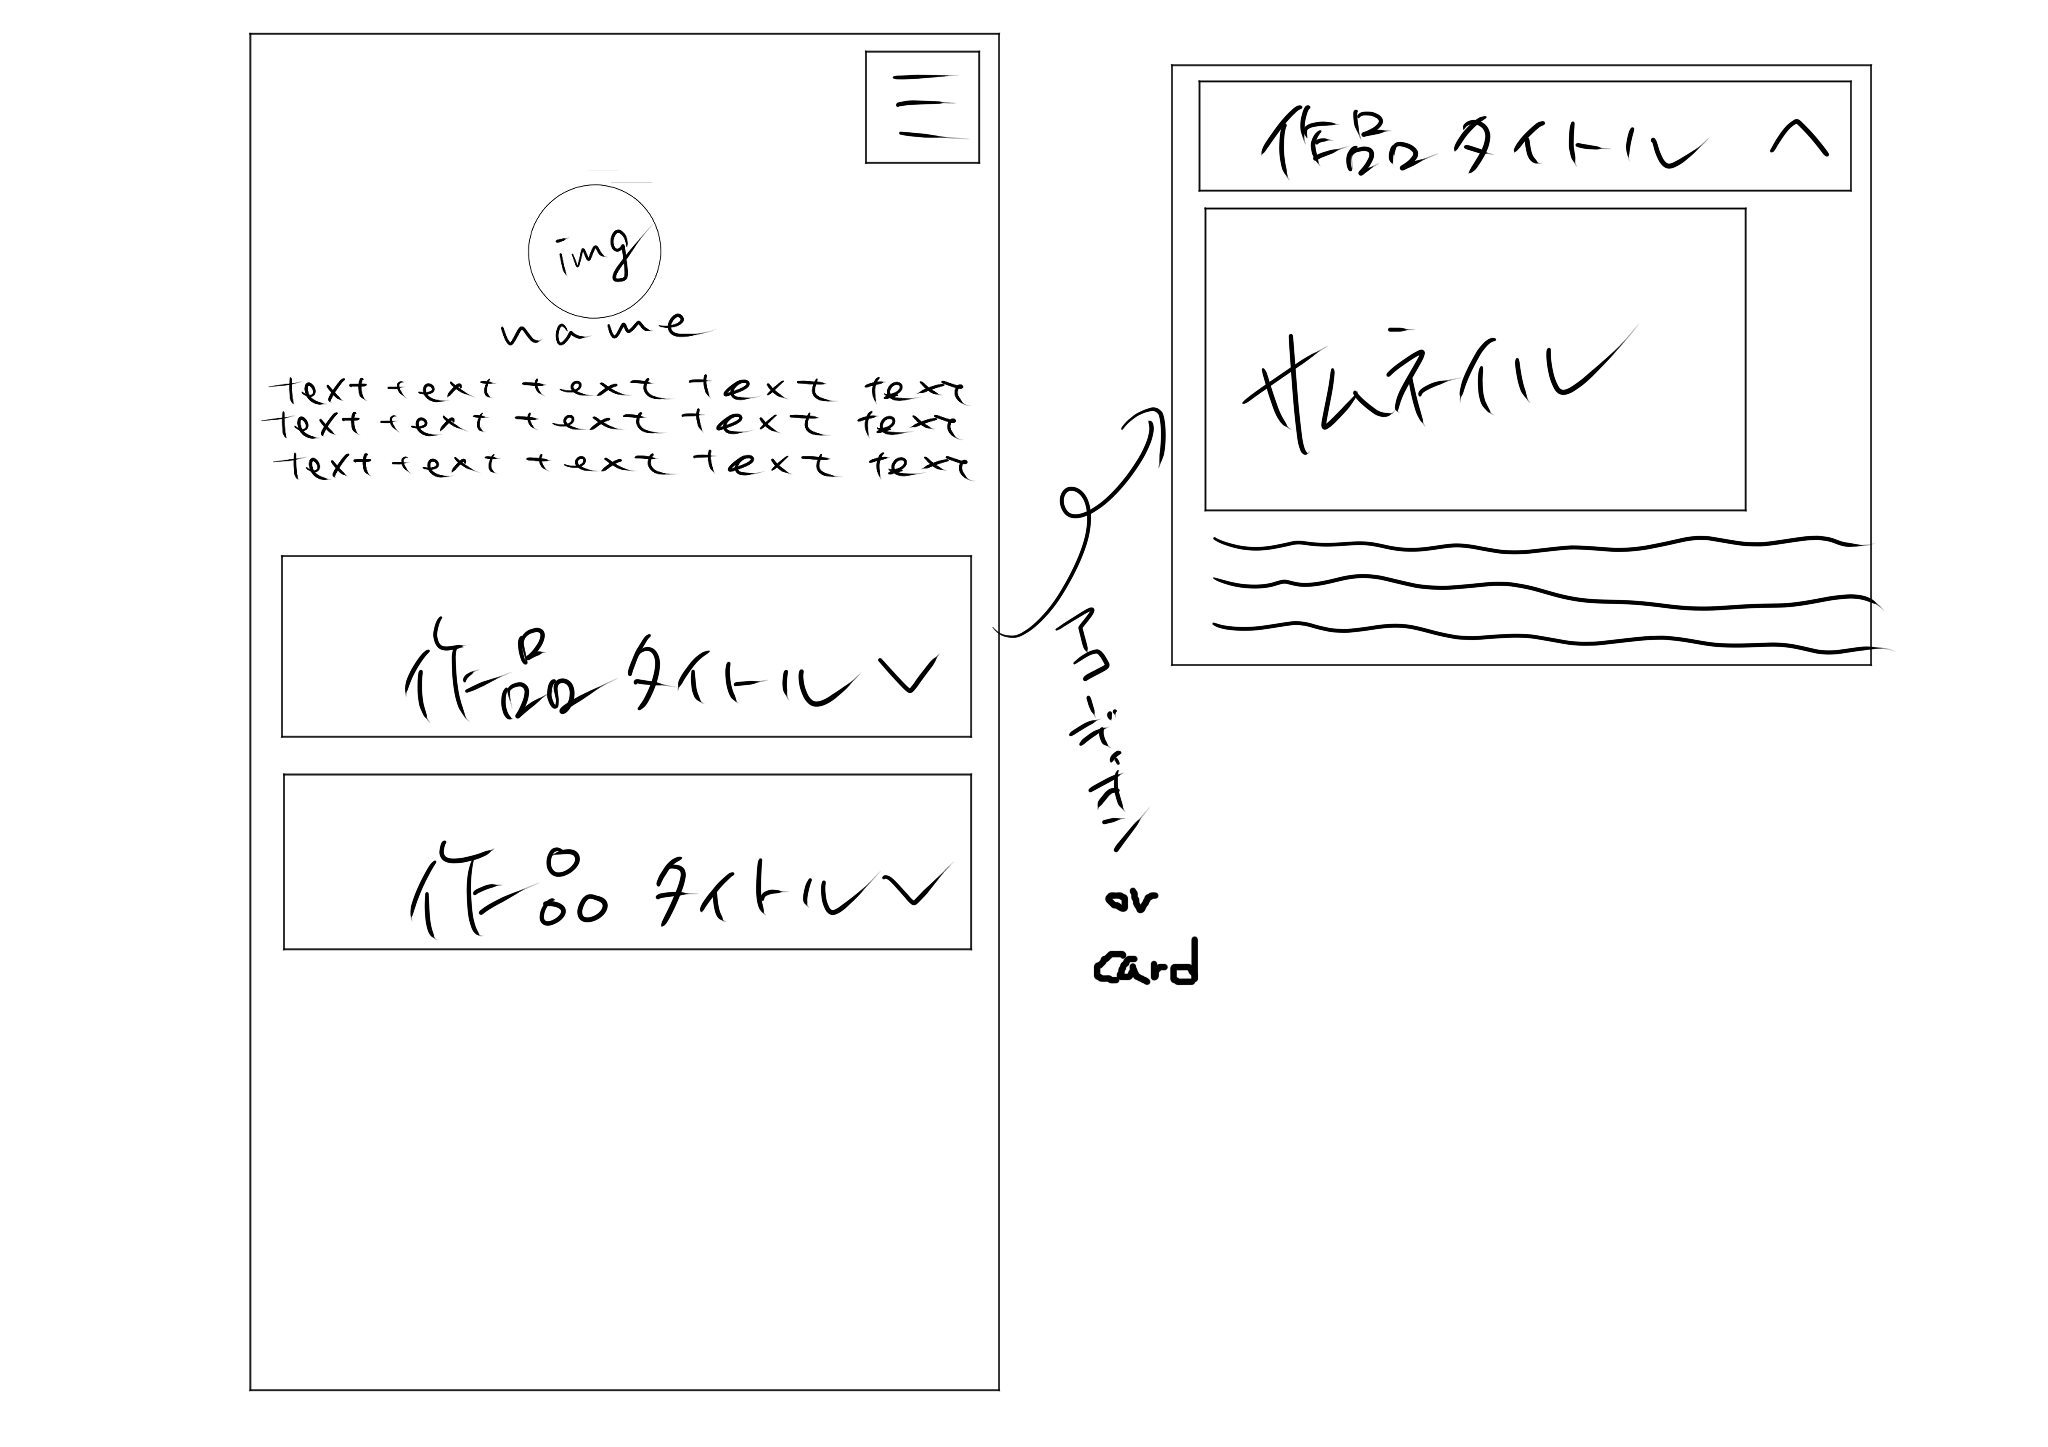 img
name
text text text text text
text text text text text
text text text text text
作品タイトル
作品タイトル
アコーディオン
or
card
作品タイトル
サムネイル